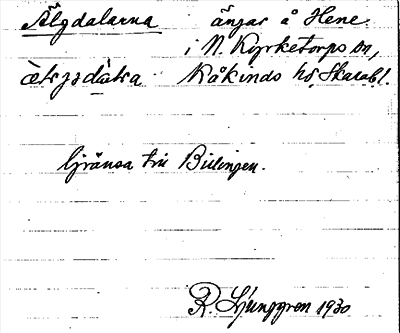 Älgdalarna ängar å Hene
i N. Kyrketorps sn,
Kåkinds hd, Skarab. l.
Gränsa till Billingen.
R. Ljunggren 1930